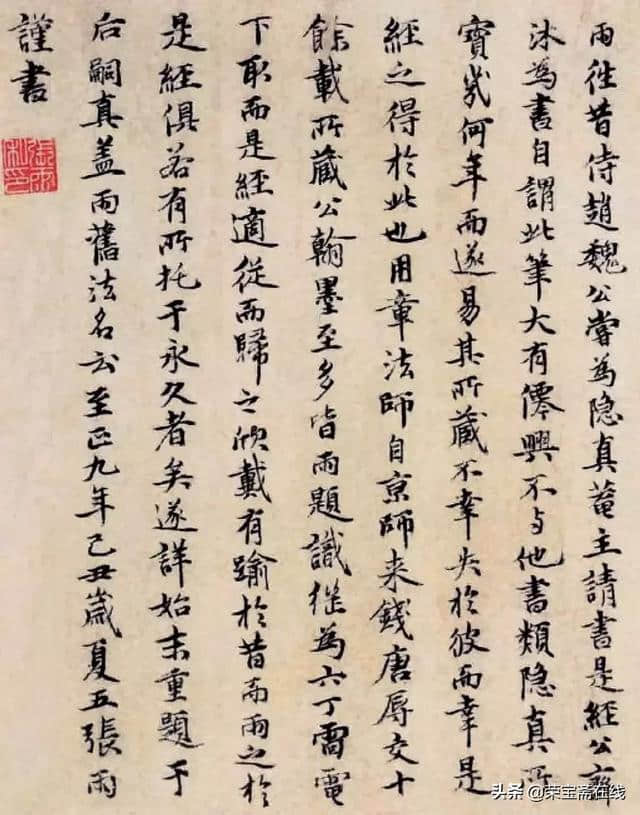 雨往昔侍趙魏公嘗為隐真菴主請書是經公齋
沐為書自謂此筆大有僊興不与他書類隐真所
寶幾何年而遂易其所藏不幸失於彼而幸是
經之得於此也用章法師自京師来錢唐辱交十
餘載所藏公翰墨至多皆雨題識継為六丁雷電
下取而是經適從而歸之欣戴有踰於昔而雨之於
是經俱若有所托于永久者矣遂詳始末重題于
后嗣真盖雨舊法名云至正九年己丑歲夏五張雨
謹書
头条 @荣宝斋在线